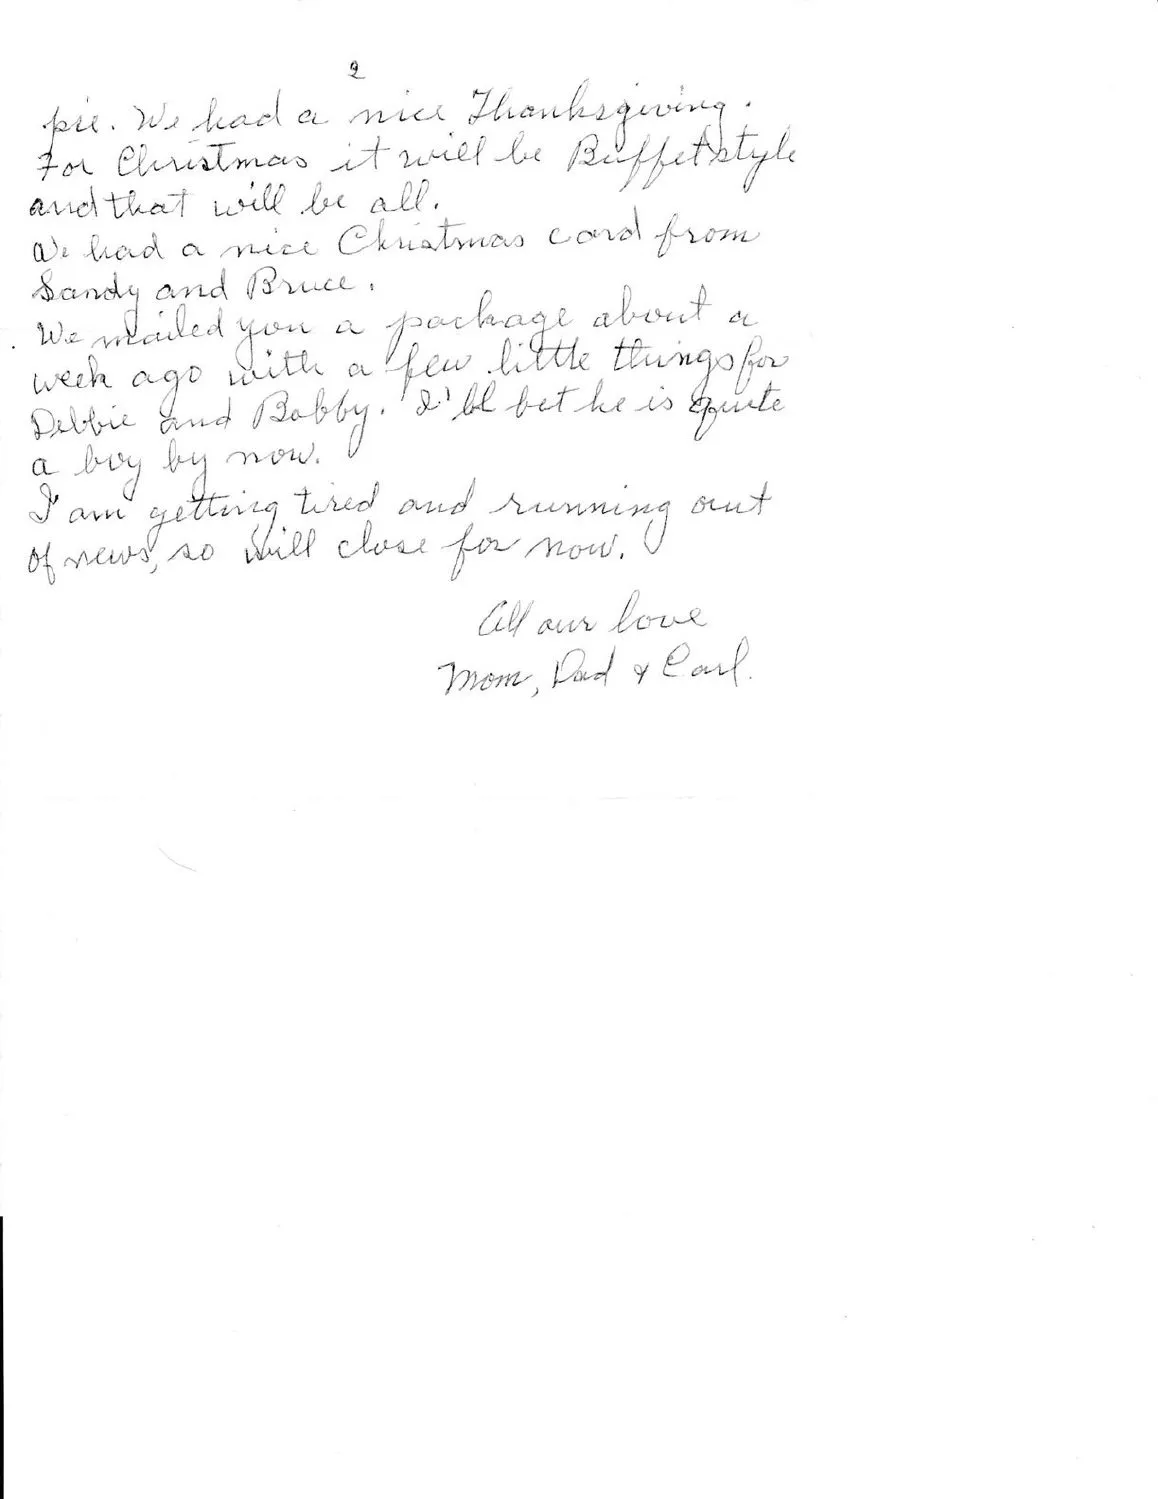 2
pie. We had a nice Thanksgiving.
For Christmas it will be Buffet style
and that will be all.
We had a nice Christmas card from
Sandy and Bruce.
We mailed you a package about a
week ago with a few little things for
Debbie and Bobby. I'll bet he is quite
a boy by now.
I am getting tired and running out
of news, so will close for now.
All our love
Mom, Dad & Carl.